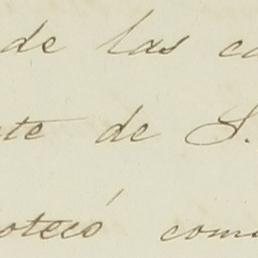 de las ca
te de S.
otecó com